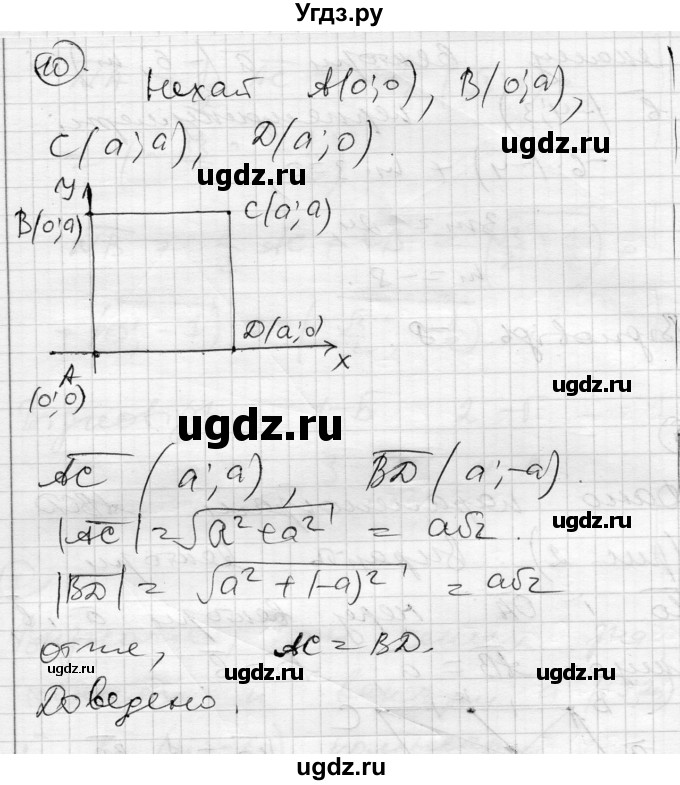 Угдз.ру
10.
Нехай A(0;0), B(0;a),
C(a;a), D(a;0).
ugdz.ru
y
B(0;a)
C(a;a)
D(a;0)
x
A
(0;0)
ugdz.ru
ugdz.ru
AC (a;a), BD (a;-a).
|AC| = √a² + a² = a√2.
ugdz.ru
|BD| = √a² + (-a)² = a√2
отже, AC = BD.
ugdz.ru
ugdz.ru
ugdz.ru
Доведено.
ugdz.ru